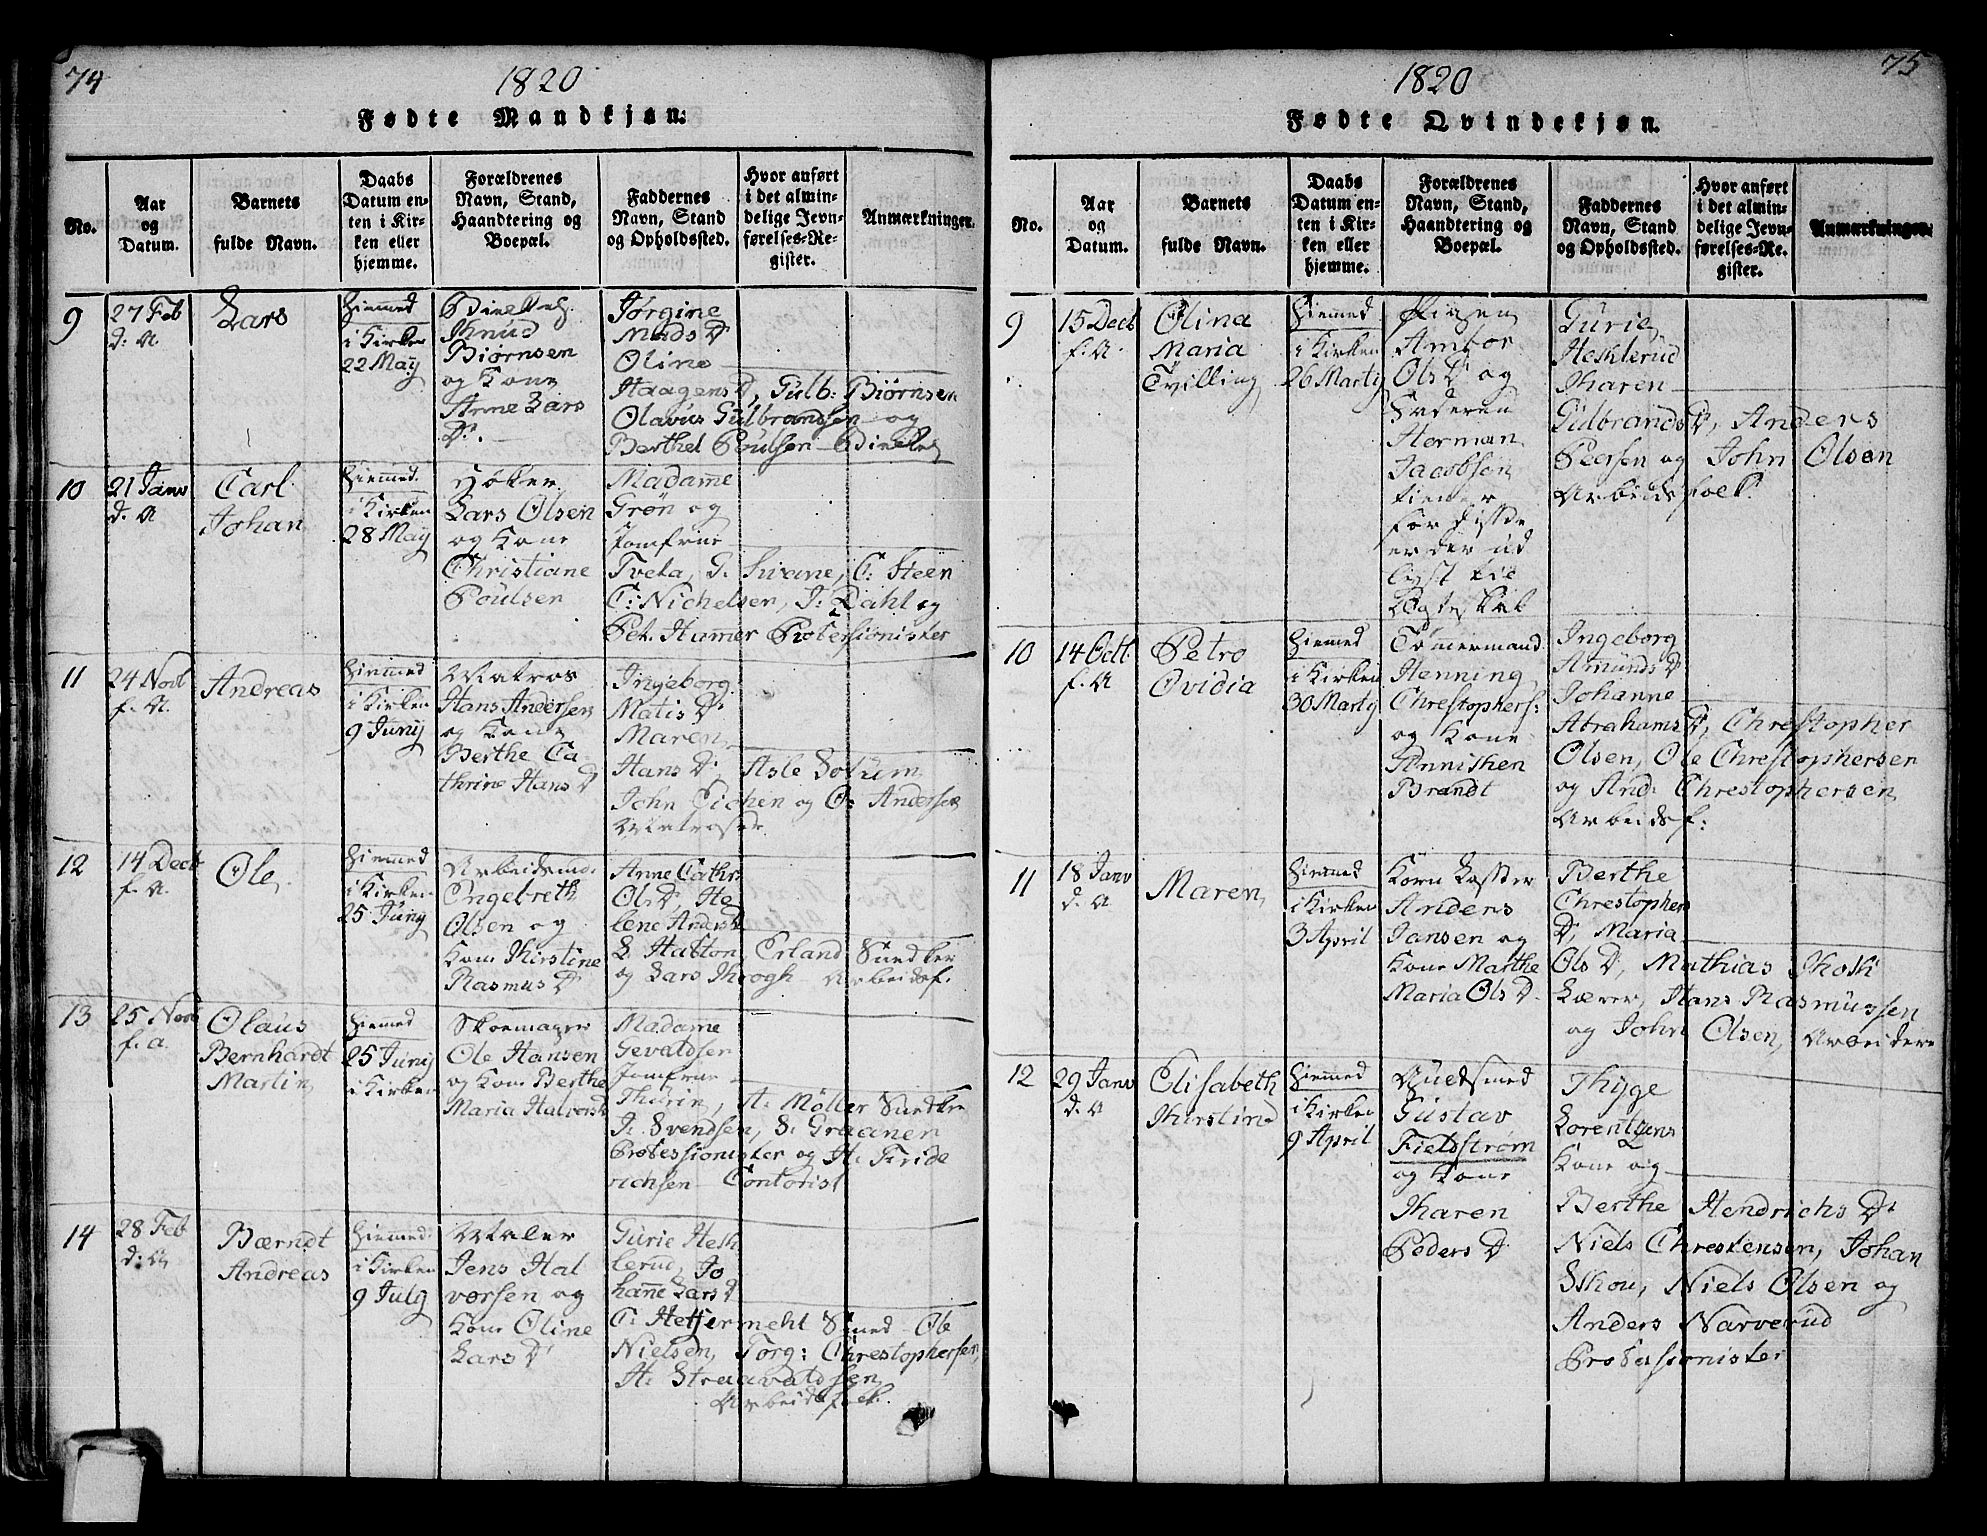 74
1820
Fødte Mandkjøn.
No.
Aar
og
Datum.
Barnets
fulde Navn.
Daabs
Datum en-
ten i Kir-
ken eller
hjemme.
Forældrenes
Navn, Stand,
Haandtering og
Boepæl.
Faddernes
Navn, Stand
og Opholdssted.
Hvor anført
i det almin-
delige Jevn-
førelses-Re-
gister.
Anmærkninger.
9
27 Feb
d: A
Lars
Hiemmed
i Kirken
22 May
Knud
Biørnsen
og Kone
Anne Lars
D.
Jørgine
Mads D
Oline
Haagens D, Gulb: Biørnsen
Olavus Gulbrandsen og
Berthel Poulsen
10
21 Janv
d. A
Carl
Johan
Hiemmed.
i Kirken
28 May
Høker
Lars Olsen
og Kone
Christiane
Poulsen
Madamme
Grøn og
Jomfrue
Tveta, G. Svane, C: Steen
C: Nichelsen, J: Dahl og
Pet. Hammer Professionister
11
24 Novb
f. A.
Andreas
Hiemmed
i Kirken
9 Junij
Matros
Hans Andersen
og Kone
Berthe Ca
thrine Hans D
Ingeborg
Matis D
Maren
Hans D, Asle Solum
John Eichen og O: Andersen
Matroser
12
14 Decb
f. A.
Ole
Hiemmed
i Kirken
25 Junij
Arbeidsmd.
Engebreth
Olsen og
Kone Kirstine
Rasmus D
Anne Cathr
Ols D, He
lene Anders D
L Halton, Erland Snedker
og Lars Krogh Arbeidsf.
13
25 Novb
f. a.
Olaus
Bernhardt
Martin
Hiemmed
25 Junij
i Kirken
Skoemager
Ole Hansen
og Kone Berthe
Maria Halvors D
Madamme
Gevaldsen
Jomfrue
Thurin, A: Møller Snedker
J. Svendsen, S. Graaner
Professionister og H. Fride
richsen Contorist
14
28 Feb
d: A
Bærndt
Andreas
Hiemmed
i Kirken
9 July
Maler
Jens Hal
vorsen og
Kone Oline
Lars D
Gurie Hesk
lerud, Jo
hanne Lars D
C: Hetsermehl Smed Ole
Nielsen, Torg: Christophersen,
H. Straavaldsen
Arbeidsfolk.
75
1820
Fødte Qvindekjøn.
No.
Aar
og
Datum.
Barnets
fulde Navn.
Daabs
Datum en-
ten i Kir-
ken eller
hjemme.
Forældrenes
Navn, Stand,
Haandtering og
Boepæl.
Faddernes
Navn, Stand
og Opholdssted.
Hvor anført
i det almin-
delige Jevn-
førelses-Re-
gister.
Anmærkninger.
9
15 Decb
f. A.
Olina
Maria
Tvilling
Hiemmed
i Kirken
26 Martij
Pigen
Ambor
Ols D og
Herman
Jacobsen
tiener
for disse
er der ud
lyst til
Ægteskab
Gurie
Hesklerud
Karen
Gulbrands D, Anders
Peersen og John Olsen
Arbeidsfolk.
10
14 Octb.
f. A
Petro
Ovidia
Hiemmed
i Kirken
30 Martij
Tømermand
Henning
Christophers:
og Kone
Annichen
Brandt
Ingeborg
Amunds D
Johanne
Abrahams D, Christopher
Olsen, Ole Christophersen
og And: Christophersen
Arbeidsf:
11
18 Janv
d. A
Maren
Hiemmed
i Kirken
3 April
Anders
Jansen og
Kone Marthe
Maria Ols D.
Berthe
Christophers
D, Maria
Ols D, Mathias
Lærer, Hans Rasmussen
og John Olsen, Arbeidere
12
29 Janv
d. A
Elisabeth
Kirstine
Hiemmed
i Kirken
9 April
Guldsmed
Gustav
Fieldstrøm
og Kone
Karen
Peders D
Thyge
Lorentzens
Kone og
Berthe Hendrichs D
Niels Christensen, Johan
Skou, Niels Olsen og
Anders Narverud
Professionister